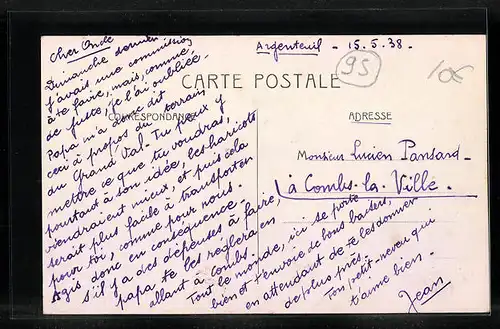 Argenteuil - 15.5.38 -
95
10€
CARTE POSTALE
CORRESPONDANCE
ADRESSE
Cher Oncle
Dimanche dernier
j'avais une commission
à te faire, mais, comme
de juste, je l'ai oubliée.
Papa m'a donc dit
ceci à propos du terrain
du Grand Val. Tu peux y
mettre ce que tu voudras,
pourtant à son idée, les haricots
viendraient mieux, et puis cela
serait plus facile à transporter
pour toi, comme pour nous.
Agis donc en conséquence.
S'il y a des dépenses à faire,
papa te les réglera en
allant à Combs.
Tout le monde, ici se porte
bien et t'envoie de bons baisers,
en attendant de te les donner
de plus près.
Ton petit-neveu qui
t'aime bien.
Jean
Monsieur Lucien Pansard
à Combs-la-Ville.